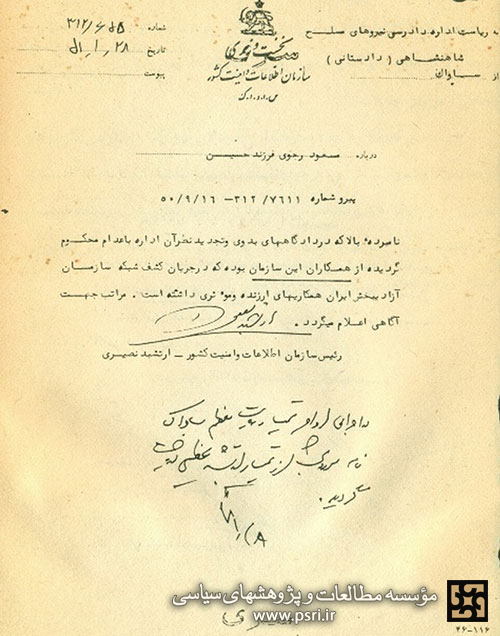 به ریاست اداره دادرسی نیروهای مسلح
شاهنشاهی ( دادستانی )
از ساواک
نخست وزیری
سازمان اطلاعات و امنیت کشور
س.ا.و.ا.ک
شماره ۳۱۲/۶۵۵
تاریخ ۵۱٫۱٫۲۸
پیوست
درباره مسعود رجوی فرزند حسین
پیرو شماره ۳۱۲/۷۶۱۱ – ۵۰/۹/۱۶
نامبرده بالا که در دادگاههای بدوی و تجدید نظر آن اداره باعدام محکوم
گردیده از همکاران این سازمان بوده که درجریان کشف شبکه سازمان
آزادیبخش ایران همکاریهای ارزنده وموثری داشته است . مراتب جهت
آگاهی اعلام میگردد .
رئیس سازمان اطلاعات وامنیت کشور – ارتشبد نصیری
ساواک
گردید .
مؤسسه مطالعات و پژوهشهای سیاسی
www.psri.ir
۴۶-۱۱۶